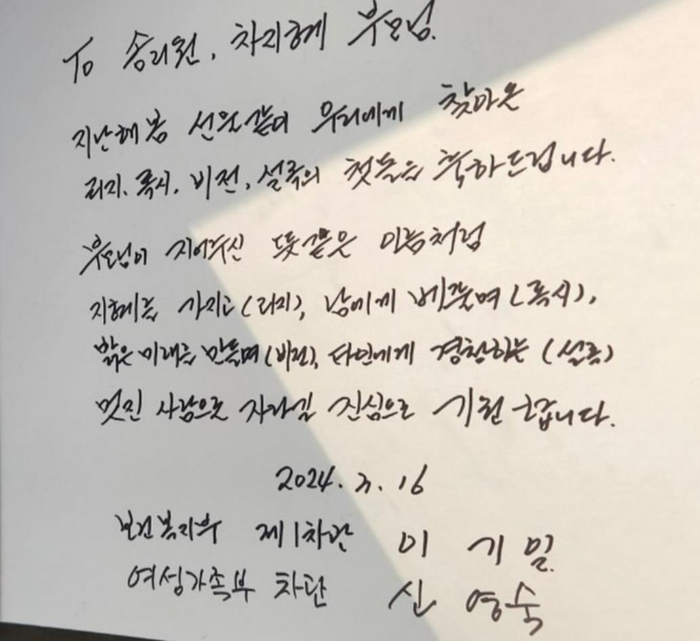 To 송리원, 차지혜 부모님.
지난해 봄 선물같이 우리에게 찾아온
리지, 록시, 비전, 설록의 첫돌을 축하드립니다.
부모님이 지어주신 뜻깊은 이름처럼
지혜를 가지고(리지), 남에게 베풀며(록시),
밝은 미래를 만들며(비전), 타인에게 경청하는(설록)
멋진 사람으로 자라길 진심으로 기원합니다.
2024. 3. 16
보건복지부 제1차관 이 기 일
여성가족부 차관 신 영 숙